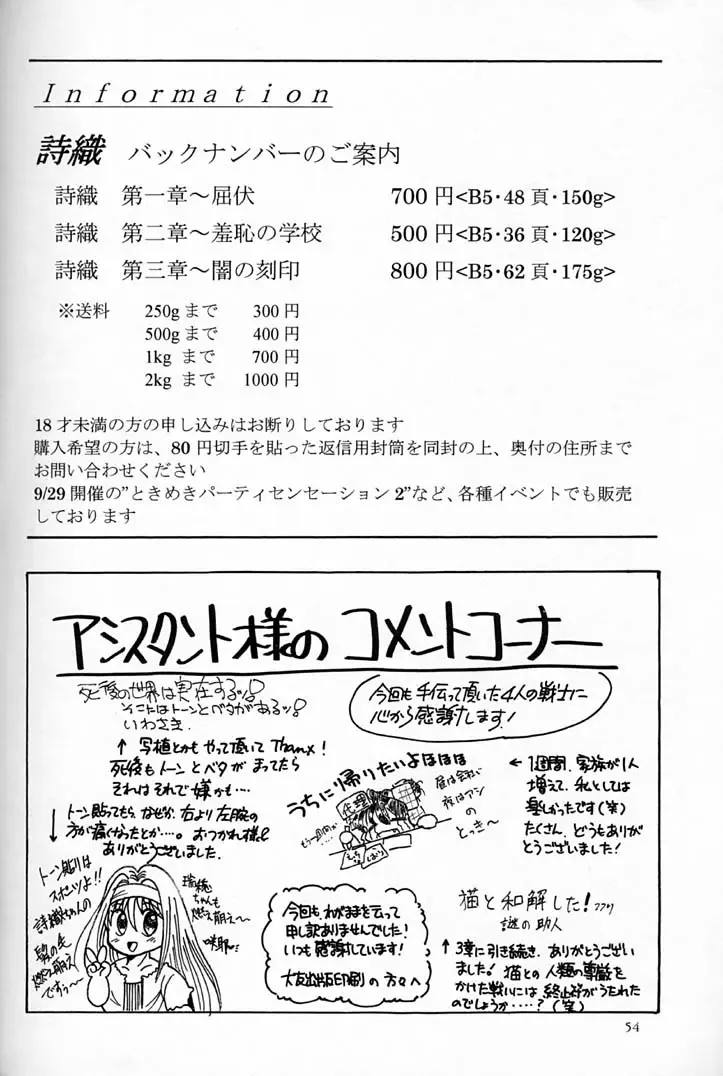 Information
詩織 バックナンバーのご案内
詩織 第一章～屈伏 700円<B5・48頁・150g>
詩織 第二章～羞恥の学校 500円<B5・36頁・120g>
詩織 第三章～闇の刻印 800円<B5・62頁・175g>
※送料 250gまで 300円
500gまで 400円
1kg まで 700円
2kg まで 1000円
18才未満の方の申し込みはお断りしております
購入希望の方は、80円切手を貼った返信用封筒を同封の上、奥付の住所まで
お問い合わせください
9/29開催の”ときめきパーティセンセーション2”など、各種イベントでも販売
しております
アシスタント様のコメントコーナー
死後の世界は実在するッ!
そこにはトーンとベタがあるッ!
いわさき
↑写植とかもやって頂いてThanx!
死後もトーンとベタがまってたら
それはそれで嫌かも…
今回も手伝って頂いた4人の戦士に
心から感謝します!
うちに帰りたいよほほほ
昼は会社で
夜はアシ
の
とっき～
←1週間、家族が1人
増えて、私としては
楽しかったです(笑)
たくさん、どうもありが
とうございました!
↓トーン貼ってもら、なぜか、右より左腕の
方が痛くなったとか…。おつかれ様&
ありがとうございました。
トーン貼りは
スポーツよ!!
詩織ちゃんの
髪の毛
燃え萌え
ですぅ～
瑞穂
ちゃんも
燃え萌え～
咲耶
今回も、わがままを云って
申し訳ありませんでした!
いつも感謝しています!
大友出版印刷の方々へ
猫と和解した!フフリ
謎の助人
↑3章に引き続き、ありがとうござい
ました! 猫との人類の尊厳を
かけた戦いには終止符がうたれた
のでしょうか…? (笑)
54